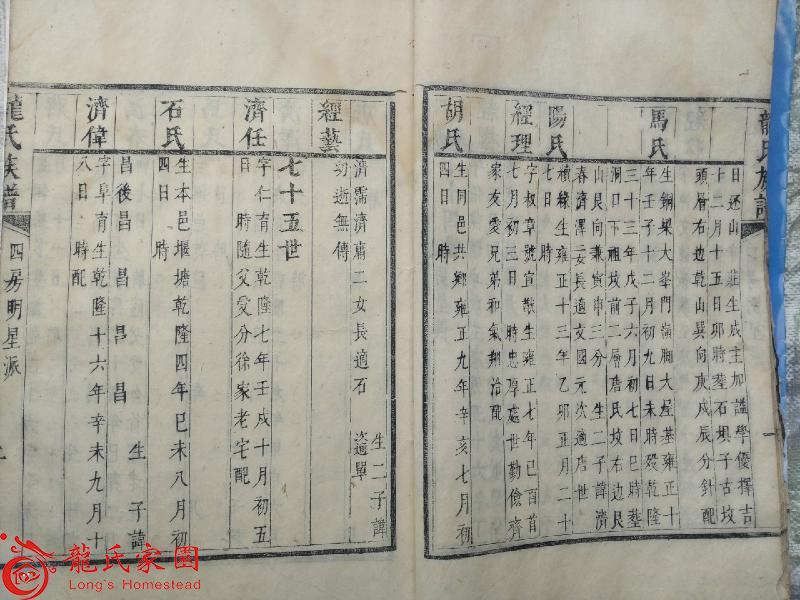 龍氏族譜
日还山 莊生成主加謚學優擇吉
十二月十五日卯時葬石坝子古坟
頭層右边乾山巽向庚戌辰分針配
馬氏
生銅梁大峯門嶺胸大屋基雍正十
年壬子十二月初九日未時殁乾隆
三十三年戊子六月初七日巳時葬
洞口下祖坟前二層唐氏坟右边艮
山艮向兼寅申三分 生二子諱濟
春濟澤二女長適文國元次適唐世
陽氏
積緣生雍正十三年乙卯正月二十
七日 時
經理
字权章號宣猷生雍正七年己酉首
七月初三日 時忠厚處世勤儉齊
家友愛兄弟和氣翔洽配
胡氏
生同邑共鄉雍正九年辛亥七月初
四日 時
生二子諱
濟霈濟甫二女長適石 次適單
經藝
幼逝無傳
七十五世
濟任
字仁育生乾隆七年壬戌十月初五
日 時随父受分徐家老宅配
石氏
生本邑堰塘乾隆四年己未八月初
四日 時
生 子諱
昌後昌 昌 昌 昌
濟偉
字阜育生乾隆十六年辛未九月十
八日 時配
龍氏族譜
四房明星派
龍氏家園
Long's Homestead